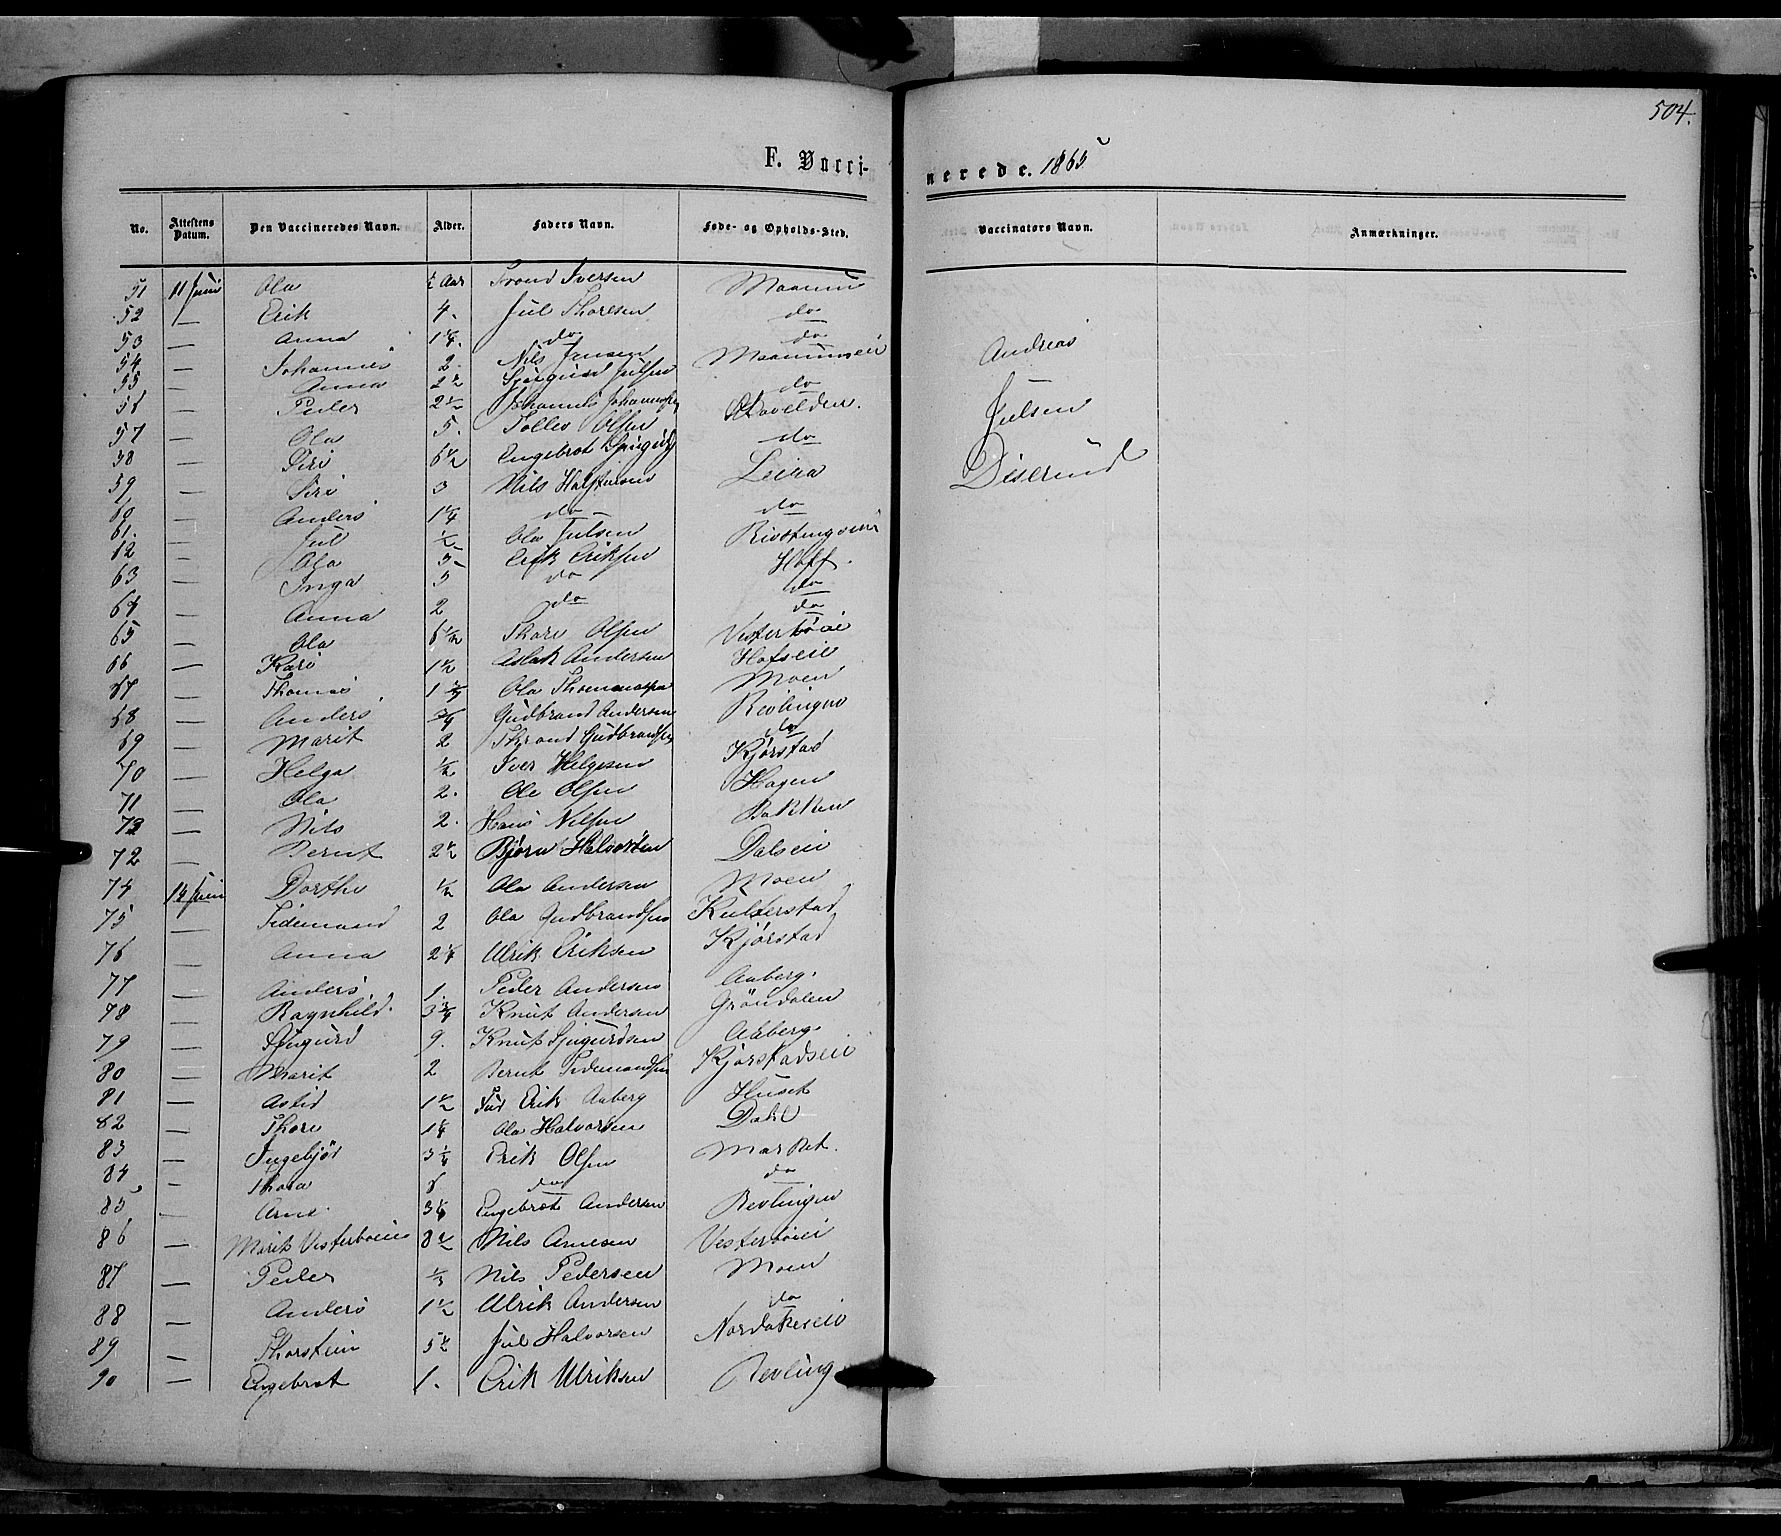 504.
F. Vacci-
nerede. 1865
No. Attestens Datum. Den Vaccineredes Navn. Alder. Faders Navn. Føde- og Opholds-Sted. Vaccinators Navn. Anmærkninger.
51 11 Juni Ola ½ Aar Trond Iversen
52 — Erik 4. Jul Thoresen do
53 — Anna 1¼. do do
54 — Johannes 2. Nils Jansen
55 — Anna 2½ Julsen do
56 — Peder 2½ Johannes
57 — Ola 5. Tollev Olsen do
58 — Siri 6½ Engebret
59 — Siri 3 Nils Leira
60 — Anders 1¼ do do
61. — Jul ½ Ola Julsen
12 — Ola 5 Erik Eriksen Hoff.
63 — Inga 3 do do
64 — Anna 2 do do
65 — Ola 6½ Thore Olsen Vesterbøie
66 — Kari 1½ Aslak Andersen Hofseie
67 — Thomas 1 Ola Moen
68 — Anders ¾ Gudbrand Andersen Revlingen
69 — Marit 2 Gudbrandsen do
70 — Helga ½ Iver Helgesen Kjørstad
71 — Ola 2. Ole Olsen Hagen
73 — Nils 2. Hans Nilsen Bakken
72 — Bernt 2½ Bjørn Halvorsen Dalseie
74 14 Juni Dorthe ½ Ola Andersen Moen
75 — Tidemand 2 Ola Gudbrandsen
76 — Anna 2¼ Ulrik Eriksen Kjørstad
77 — Anders 1. Peder Andersen Aaberg.
78 — Ragnhild. 3¾ Knut Andersen Grøndalen
79 — Sjugurd 9. Knut Sjugurdsen Aaberg
80 — Marit 2 Bernt Tidemandsen Kjørstadseie
81 — Astid 1½ Erik Aaberg Huset
82 — Thore 1¼ Ola Halvorsen Dahl
83 — Ingebjør 3¼ Erik Olsen
84 — Thora do do
85 — Arne. 3¼ Engebret Andersen Revlingen
86 — Marit Vesterbøeie 8½ Nils Arnesen Vesterbøiei
87 — Peder ⅓ Nils Pedersen Moen
88 — Anders 1½ Ulrik Andersen do
89 — Thorstein 5½ Jul Halvorsen Nordakeseie
90 — Engebret 1. Erik Ulriksen Revling
Andreas
Julsen
Diserud